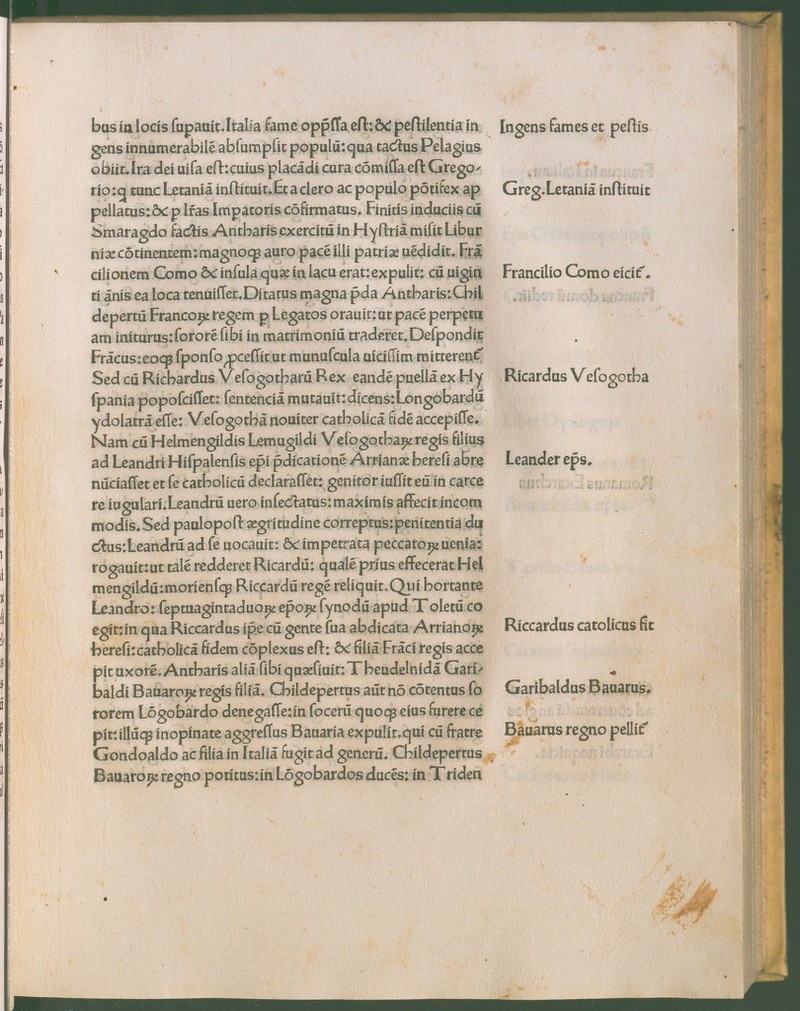 bus in locis supauit. Italia fame opp̄ssa est: & pestilentia in
gens innumerabilē absumpsit populū: qua tactus Pelagius
obiit. Ira dei uisa est: cuius placādi cura cōmissa est Grego-
rio: q tunc Letaniā instituit. Et a clero ac populo pōtifex ap
pellatus: & p lr̄as Impatoris cōfirmatus. Finitis induciis cū
Smaragdo factis Antharis exercitū in Hystriā misit Libur
niæ cōtinentem: magnoqꝫ auro pacē illi patriæ uēdidit. Frā
cilionem Como & insula quæ in lacu erat: expulit: cū uigin
ti ānis ea loca tenuisset. Ditatus magna p̄da Antharis: Chil
depertū Francoꝝ regem p Legatos orauit: ut pacē perpetu
am initurus: sororē sibi in matrimoniū traderet. Despondit
Frācus: eoqꝫ sponso ꝓcessit ut munuscula uicissim mitterent᷑
Sed cū Richardus Vesogotharū Rex eandē puellā ex Hy
spania poposcisset: sentenciā mutauit: dicens: Longobardū
ydolatrā esse: Vesogothā nouiter catholicā fidē accepisse.
Nam cū Helmengildis Lemugildi Vesogothaꝝ regis filius
ad Leandri Hispalensis ep̄i p̄dicationē Arrianæ heresi abre
nūciasset et se catholicū declarasset: genitor iussit eū in carce
re iugulari. Leandrū uero insectatus: maximis affecit incom
modis. Sed paulopost ægritudine correptus: penitentia du
ctus: Leandrū ad se uocauit: & impetrata peccatoꝝ uenia:
rogauit: ut talē redderet Ricardū: qualē prius effecerat Hel
mengildū: moriensqꝫ Riccardū regē reliquit. Qui hortante
Leandro: septuagintaduoꝝ ep̄oꝝ synodū apud Toletū co
egit: in qua Riccardus ip̄e cū gente sua abdicata Arrianoꝝ
heresi: catholicā fidem cōplexus est: & filiā Frāci regis acce
pit uxorē. Antharis aliā sibi quæsiuit: Theudelnidā Gari-
baldi Bauaroꝝ regis filiā. Childepertus aūt nō cōtentus so
rorem Lōgobardo denegasse: in socerū quoqꝫ eius furere cē
pit: illūqꝫ inopinate aggressus Bauaria expulit. qui cū fratre
Gondoaldo ac filia in Italiā fugit ad generū. Childepertus
Bauaroꝝ regno potitus: in Lōgobardos ducēs: in Triden
Ingens fames et pestis
Greg. Letaniā instituit
Francilio Como eicit᷑.
Ricardus Vesogotha
Leander ep̄s.
Riccardus catolicus fit
Garibaldus Bauarus.
Bauarus regno pellit᷑